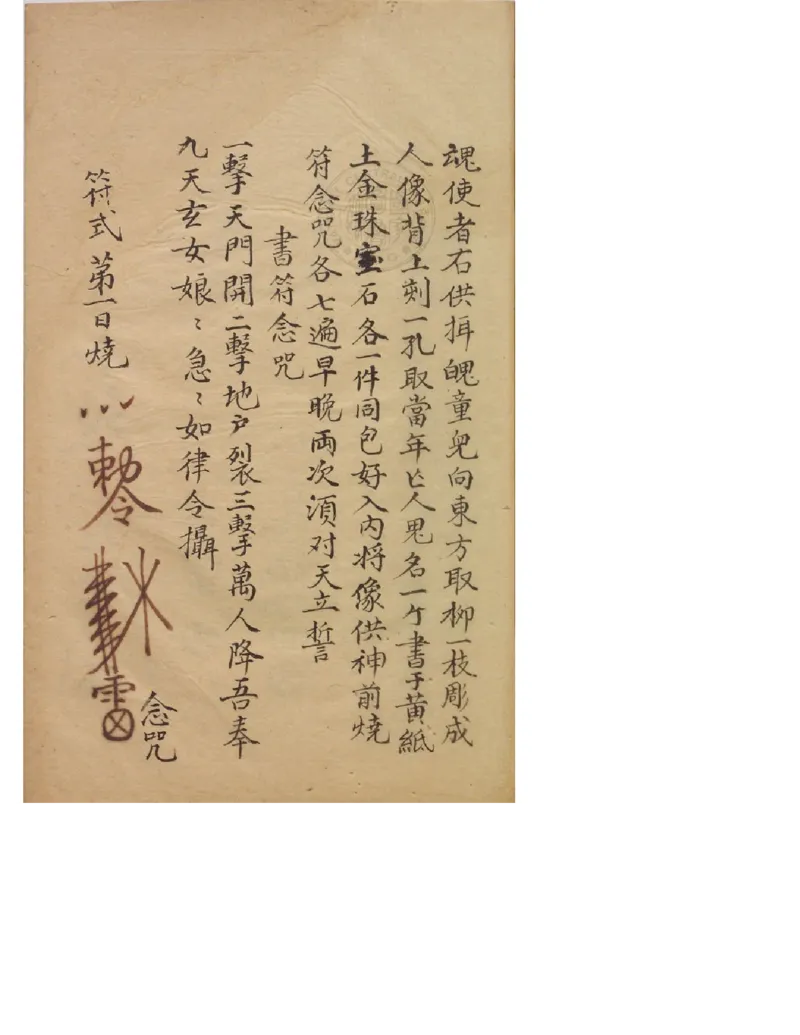 魂使者右供揖魄童皃向東方取柳一枝彫成
人像背上刻一孔取當年亡人鬼名一个書于黃紙
土金珠宝石各一件同包好入內将像供神前燒
符念咒各七遍早晚両次湏对天立誓
書符念咒
一擊天門開二擊地户裂三擊萬人降吾奉
九天玄女娘〻急〻如律令攝
符式第一日燒
勅令
雷
念咒